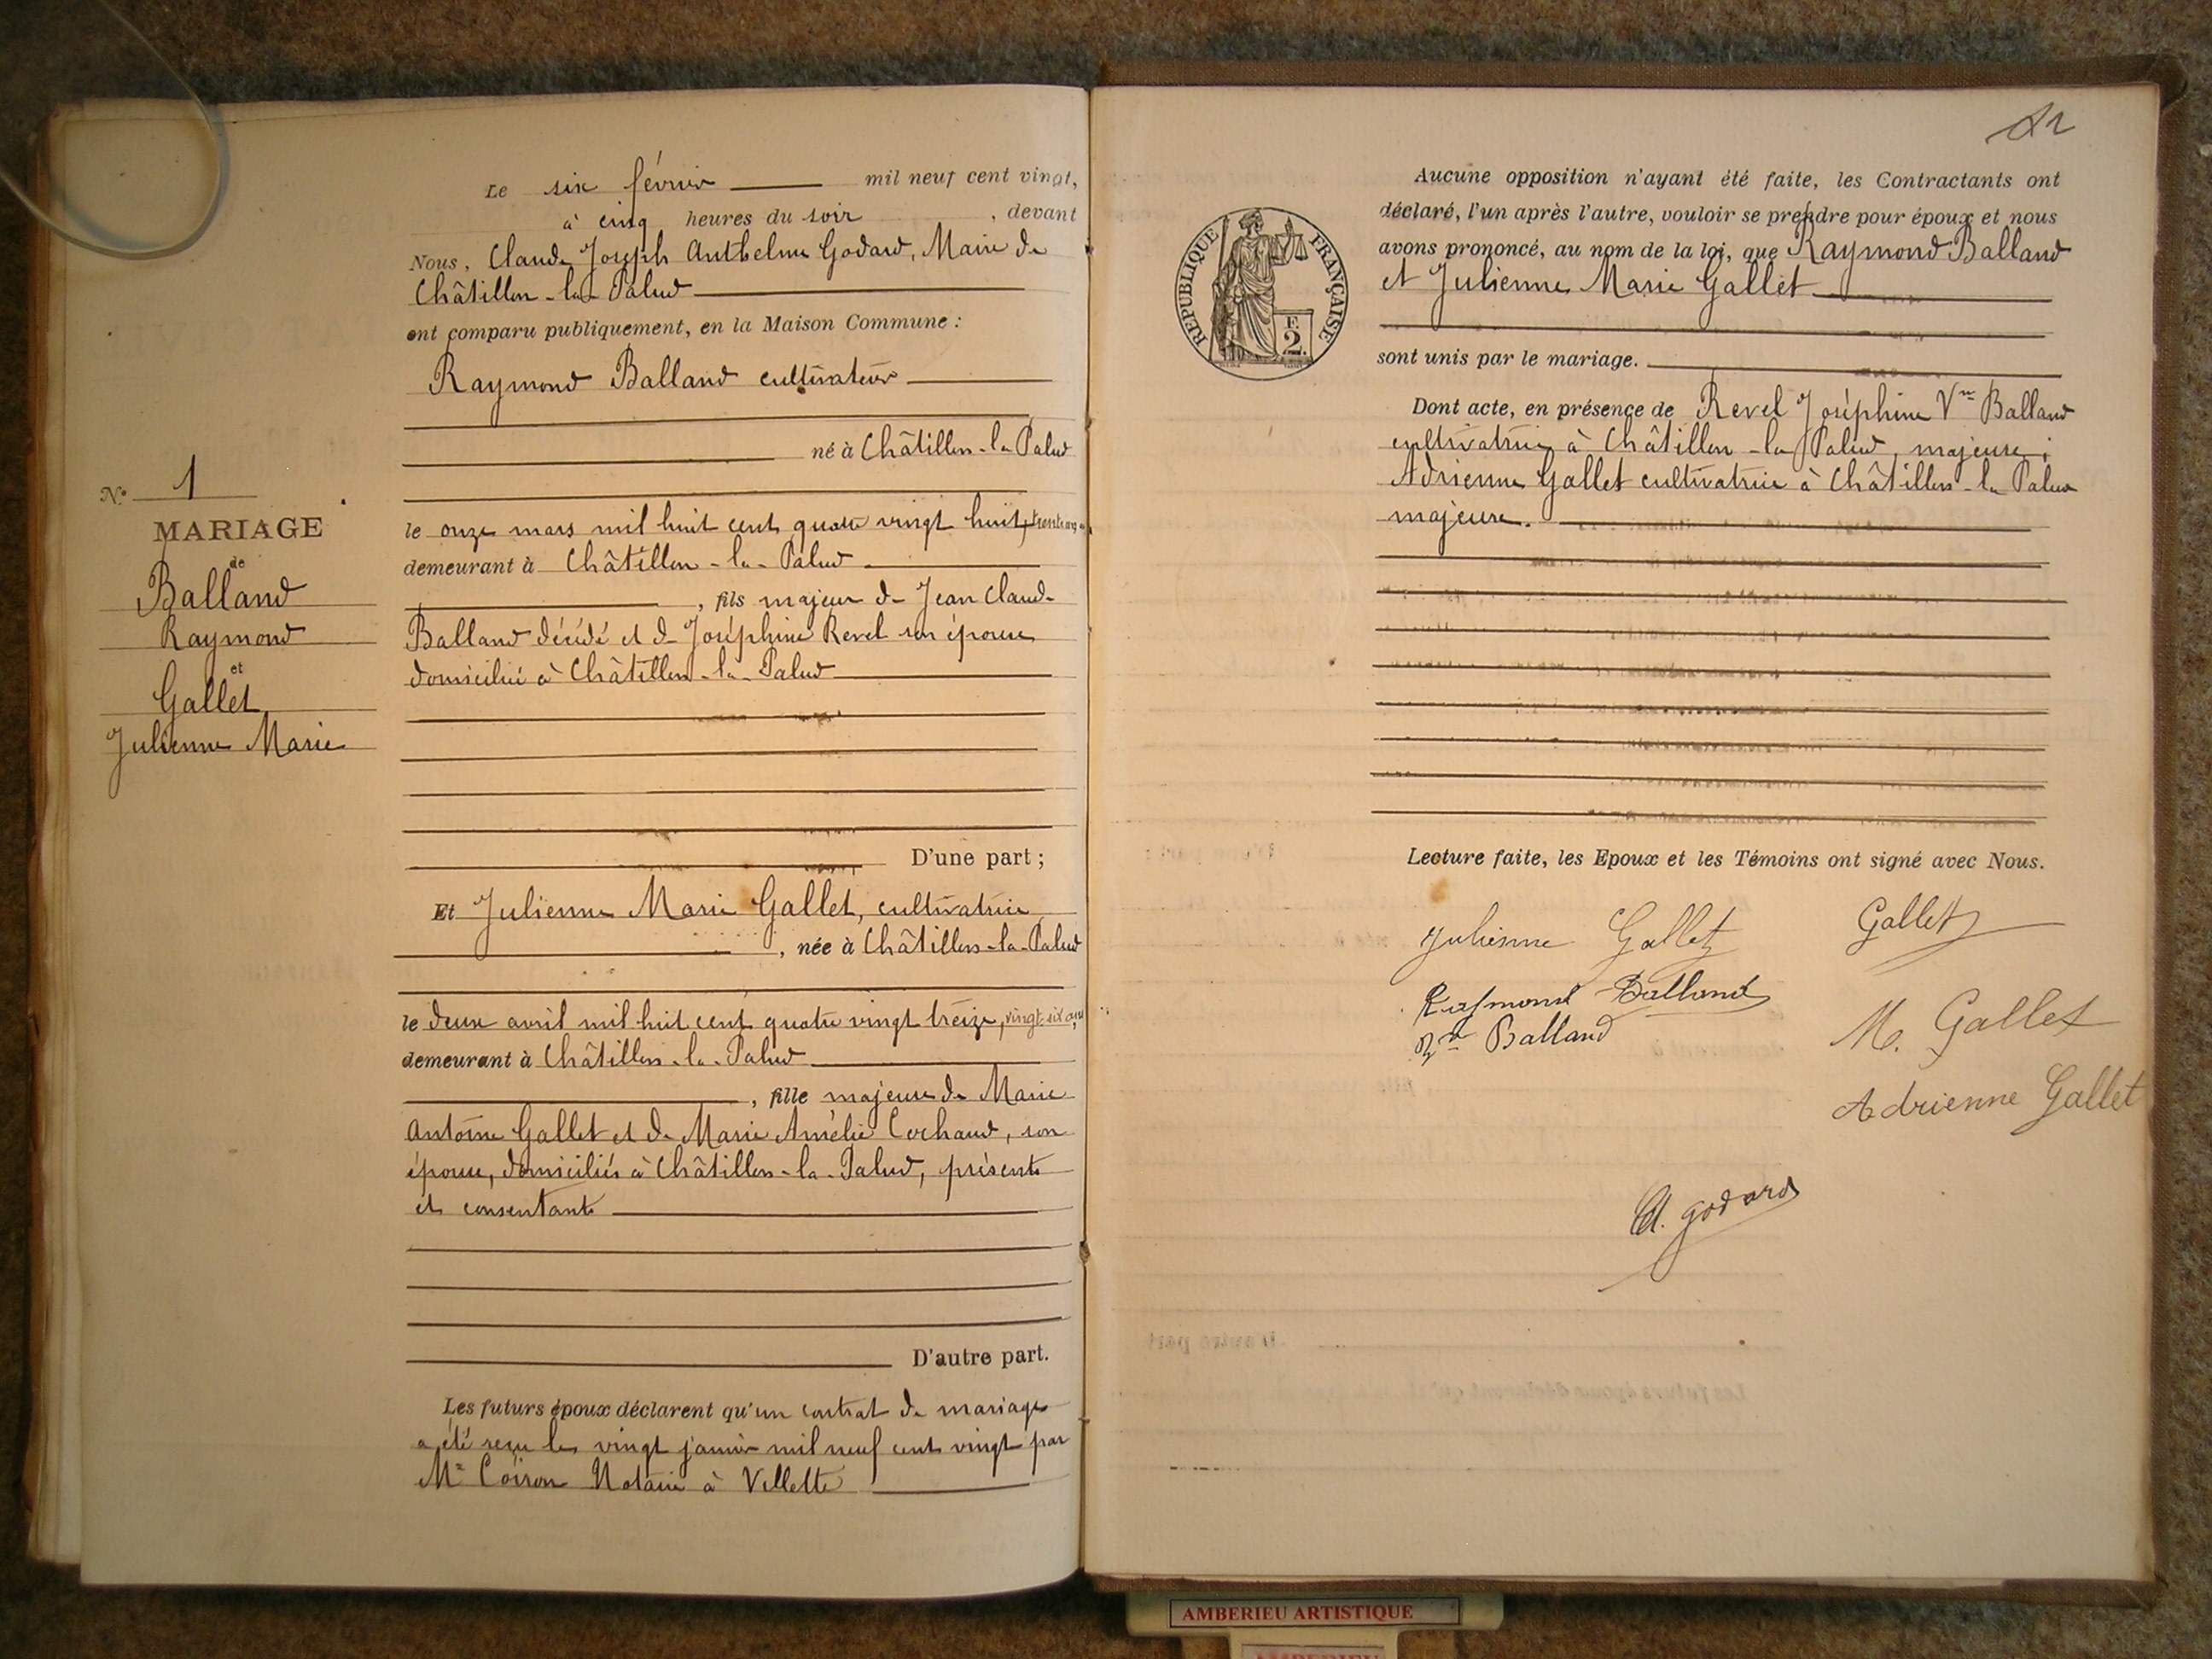 Le six février mil neuf cent vingt,
à cinq heures du soir, devant
Nous, Claude Joseph Anthelme Godard, Maire de
Châtillon-la-Palud
ont comparu publiquement, en la Maison Commune :
Raymond Balland cultivateur
né à Châtillon-la-Palud
le onze mars mil huit cent quatre vingt huit,
demeurant à Châtillon-la-Palud
, fils majeur de Jean Claude
Balland décédé et de Joséphine Revel son épouse
domiciliée à Châtillon-la-Palud
D'une part ;
Et Julienne Marie Gallet, cultivatrice
, née à Châtillon-la-Palud
le deux avril mil huit cent quatre vingt treize, vingt six ans
demeurant à Châtillon-la-Palud
, fille majeure de Marie
Antoine Gallet et de Marie Amélie Cochaud, son
épouse, domiciliés à Châtillon-la-Palud, présents
et consentants
D'autre part.
Les futurs époux déclarent qu'un contrat de mariage
a été reçu le vingt janvier mil neuf cent vingt par
Me Coiron Notaire à Villette
No 1
MARIAGE
de
Balland
Raymond
et
Gallet
Julienne Marie
RÉPUBLIQUE FRANÇAISE
F.
2.
Aucune opposition n'ayant été faite, les Contractants ont
déclaré, l'un après l'autre, vouloir se prendre pour époux et nous
avons prononcé, au nom de la loi, que Raymond Balland
et Julienne Marie Gallet
sont unis par le mariage.
Dont acte, en présence de Revel Joséphine Vve Balland
cultivatrice à Châtillon-la-Palud, majeure;
Adrienne Gallet cultivatrice à Châtillon-la-Palud
majeure.
Lecture faite, les Epoux et les Témoins ont signé avec Nous.
Julienne Gallet
Gallet
Raymond Balland
Vve Balland
M. Gallet
Adrienne Gallet
Godard
AMBERIEU ARTISTIQUE
AMBERIEU